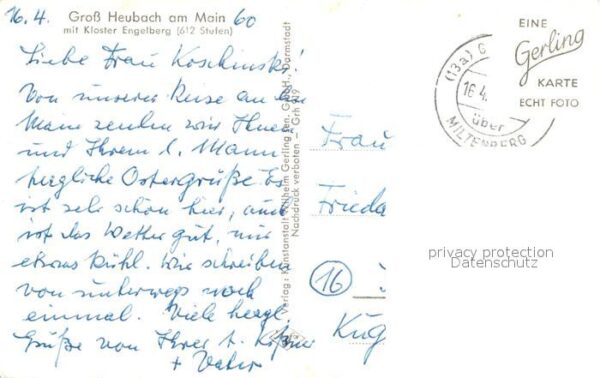 16. 4. 60
Groß Heubach am Main
mit Kloster Engelberg (612 Stufen)
Liebe Frau Koschinski!
Von unserer Reise an den
Main senden wir Ihnen
und Ihrem l. Mann
herzliche Ostergrüße. Es
ist sehr schön hier, auch
ist das Wetter gut, nur
etwas kühl. Wir schreiben
von unterwegs noch
einmal. Viele herzl.
Grüße von Ihrer
+ Vater
Verlag: Kunstanstalt Wilhelm Gerling sen. GmbH., Darmstadt
Nachdruck verboten — Grh
EINE
Gerling
KARTE
ECHT FOTO
(13a) G
16.4.
über
MILTENBERG
Frau
Frieda
16
Kug
privacy protection
Datenschutz